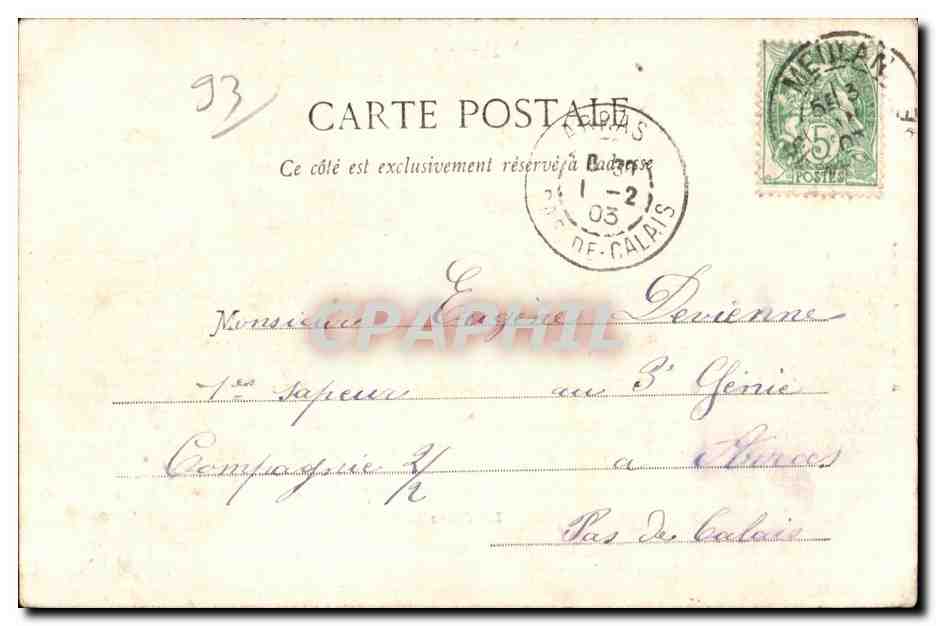 93
CARTE POSTALE
Ce côté est exclusivement réservé à l'adresse
MEULAN
5
POSTES
ARRAS
1 -2
03
PAS-DE-CALAIS
Monsieur Eugène Devienne
1er sapeur au 3e Génie
Compagnie 2/2 a Arras
Pas de Calais
CPAPHIL